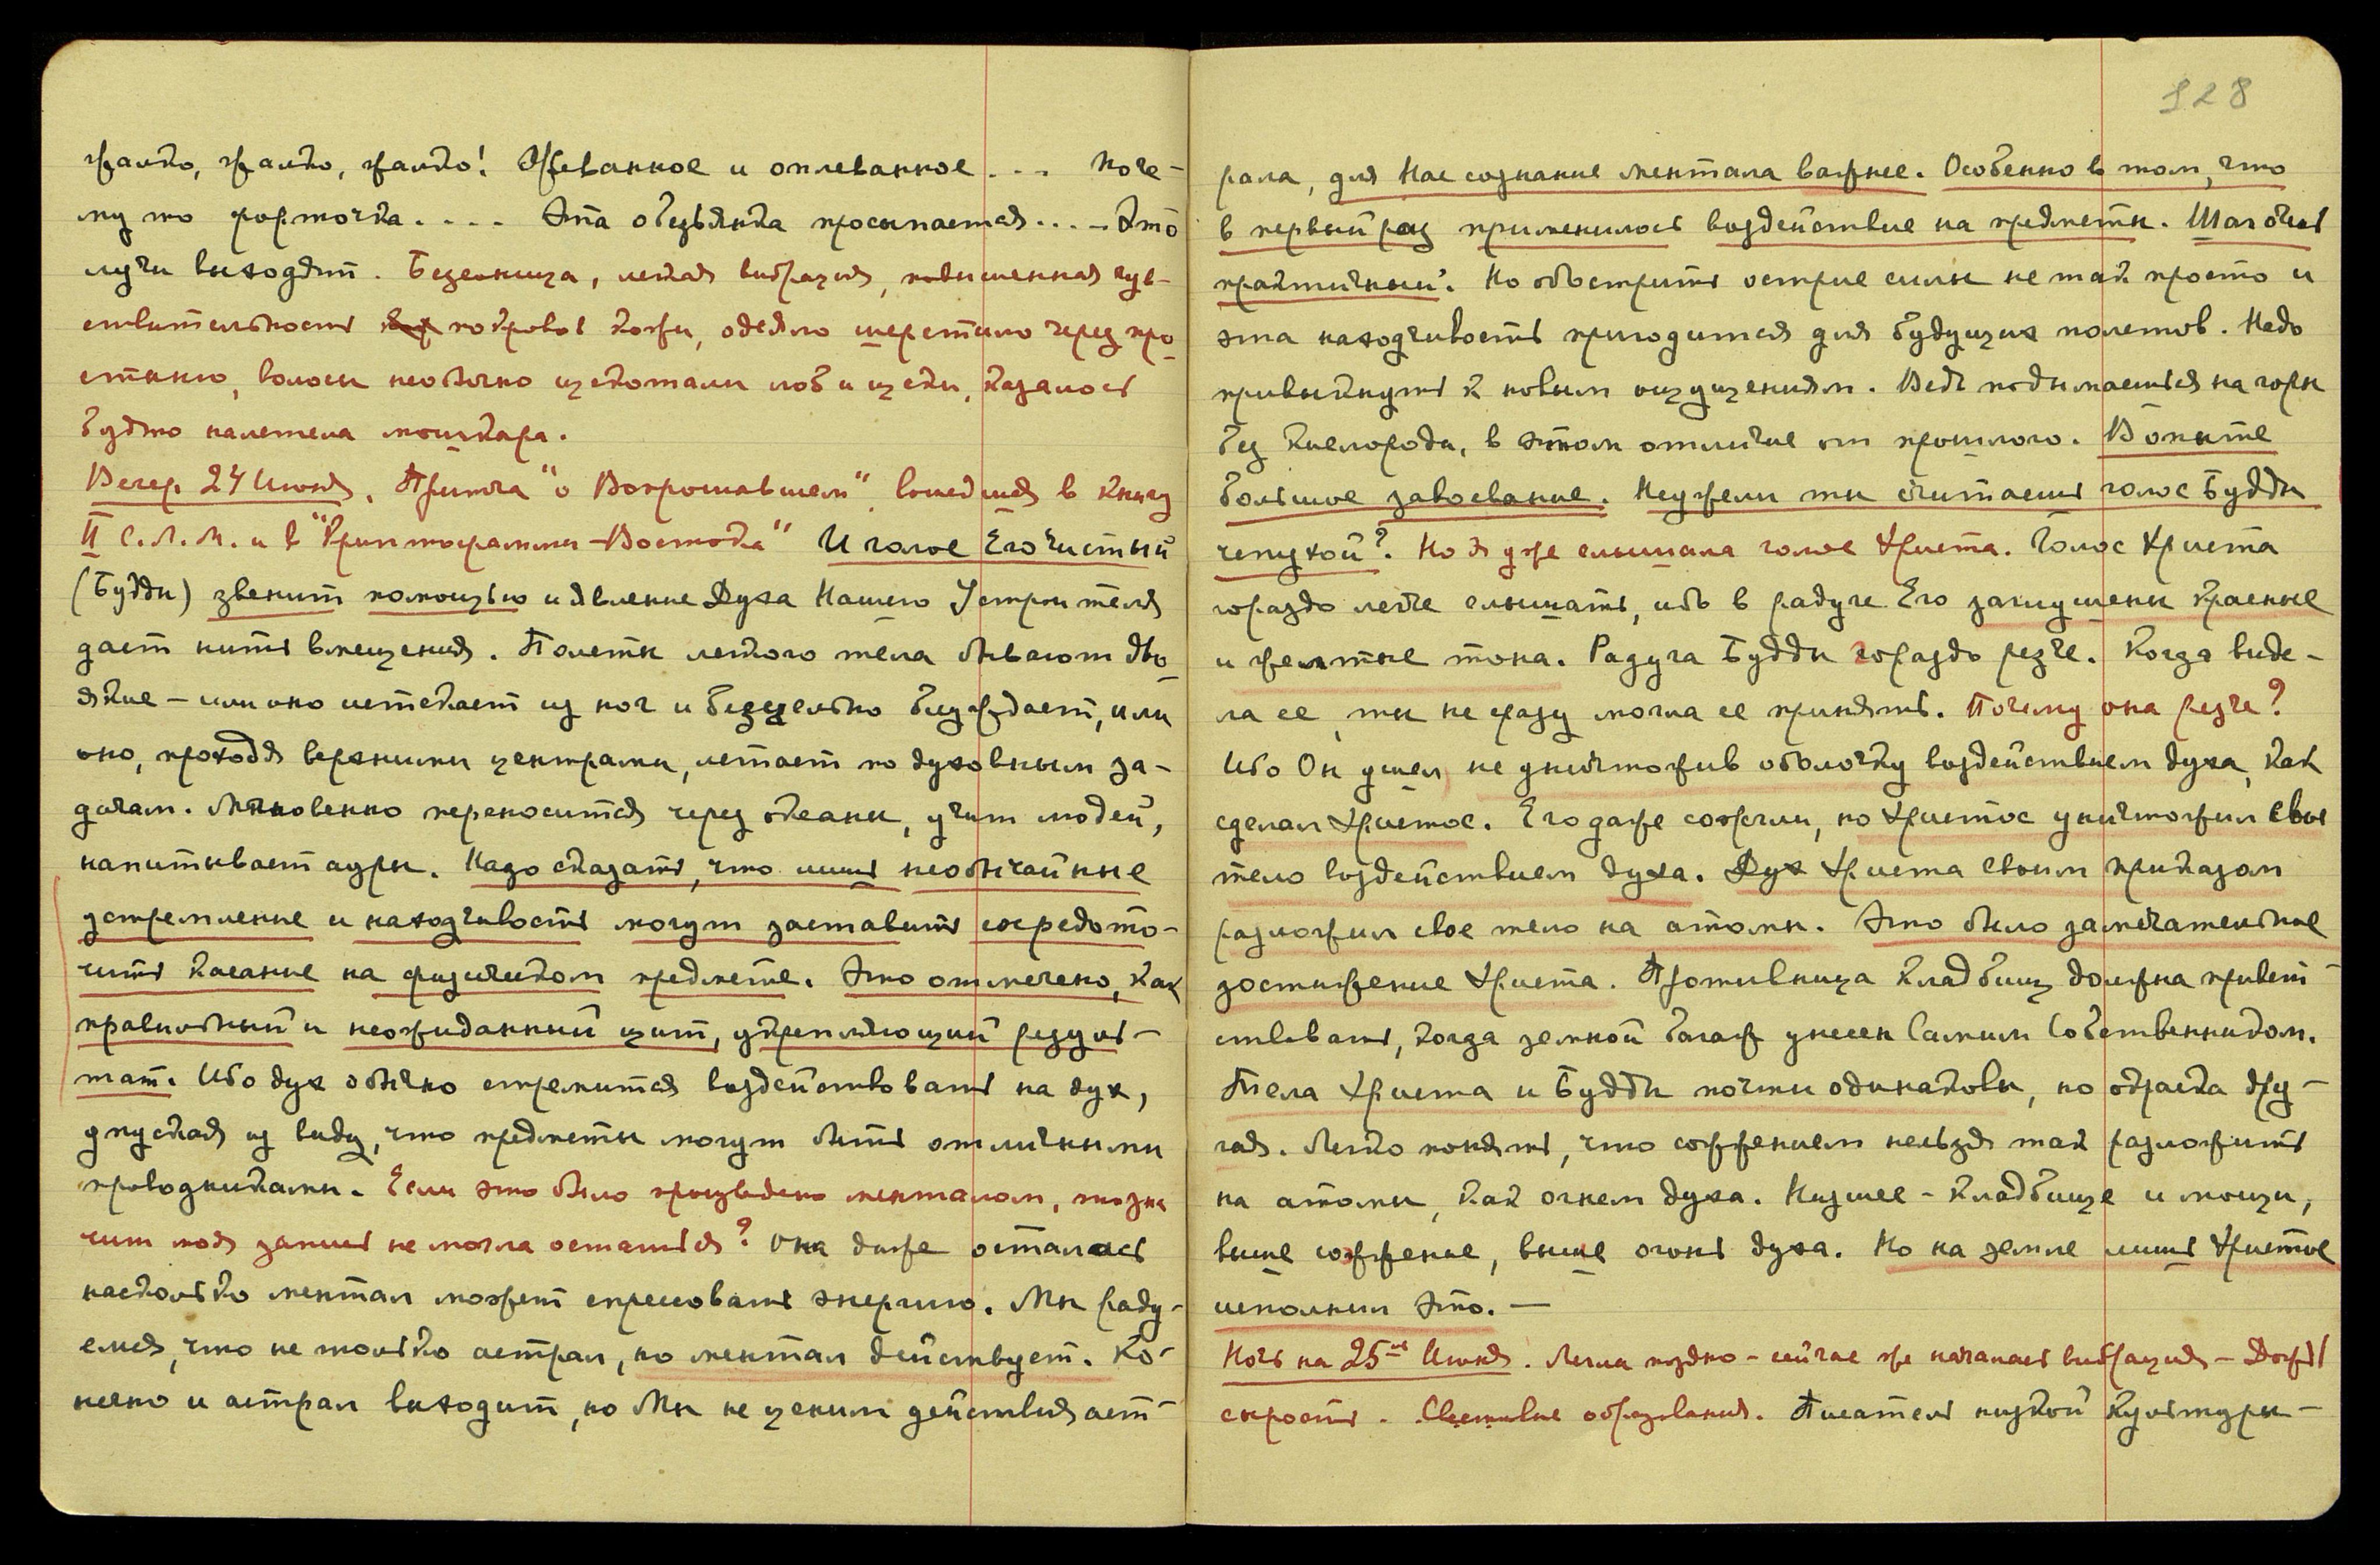 жалко, жалко, жалко! Жеванное и оплеванное ... Поче-
му то форточка.... Эта обезьянка просыпается... Это
лучи выходят. Безсонница, легкая вибрация, повышенная чув-
ствительность покровов кожи, одеяло шерстило через про-
стыню, волосы необычно щекотали лоб и щеки, казалось
будто налетела мошкара.
Вечер 24 Июня. Притча "о Вопрошавшем" вошедшая в книгу
II С.Л.М. и в "Криптограммы Востока" И голос Его чистый
(Будды) звенит помощью и явление Духа Нашего Устроителя
дает нить вмещения. Полеты легкого тела бывают дво-
якие – или оно истекает из ног и безцельно блуждает, или
оно, проходя верхними центрами, летает по духовным за-
дачам. Мгновенно переносится через океаны, учит людей,
напитывает ауры. Надо сказать, что лишь необычайные
устремление и находчивость могут заставить сосредото-
чить касание на физическом предмете. Это отмечено, как
правильный и неожиданный щит, укрепляющий резуль-
тат. Ибо дух обычно стремится воздействовать на дух,
упуская из виду, что предметы могут быть отличными
проводниками. Если это было произведено менталом, то зна
чит моя запись не могла остаться? Она даже осталась
насколько ментал может спрессовать энергию. Мы раду-
емся, что не только астрал, но ментал действует. Ко-
нечно и астрал выходит, но Мы не ценим действия аст-
128
рала, для Нас сознание ментала важнее. Особенно в том, что
в первый раз применилось воздействие на предметы. Шаг очень
практичный. Но обострить острие силы не так просто и
эта находчивость пригодится для будущих полетов. Надо
привыкнуть к новым ощущениям. Ведь подымаешься на горы
без кислорода, в этом отличие от прошлого. Вопите
большое завоевание. Неужели ты считаешь голос Будды
чепухой? Но я уже слышала голос Христа. Голос Христа
гораздо легче слышать, ибо в радуге Его заглушены красные
и желтые тона. Радуга Будды гораздо резче. Когда виде-
ла ее, ты не сразу могла ее принять. Почему она резче?
Ибо Он ушел, не уничтожив оболочку воздействием духа, как
сделал Христос. Его даже сожгли, но Христос уничтожил свое
тело воздействием духа. Дух Христа своим приказом
разложил свое тело на атомы. Это было замечательное
достижение Христа. Противница кладбищ должна привет-
ствовать, когда земной багаж унесен Самим Собственником.
Тела Христа и Будды почти одинаковы, но окраска дру-
гая. Легко понять, что сожжением нельзя так разложить
на атомы, как огнем духа. Низшее – кладбище и мощи,
выше сожжение, выше огонь духа. Но на земле лишь Христос
исполнил это. —
Ночь на 25ое Июня. Легла поздно – сейчас же началась вибрация – Дождь
сырость. Световые образования. Писатель низкой культуры –